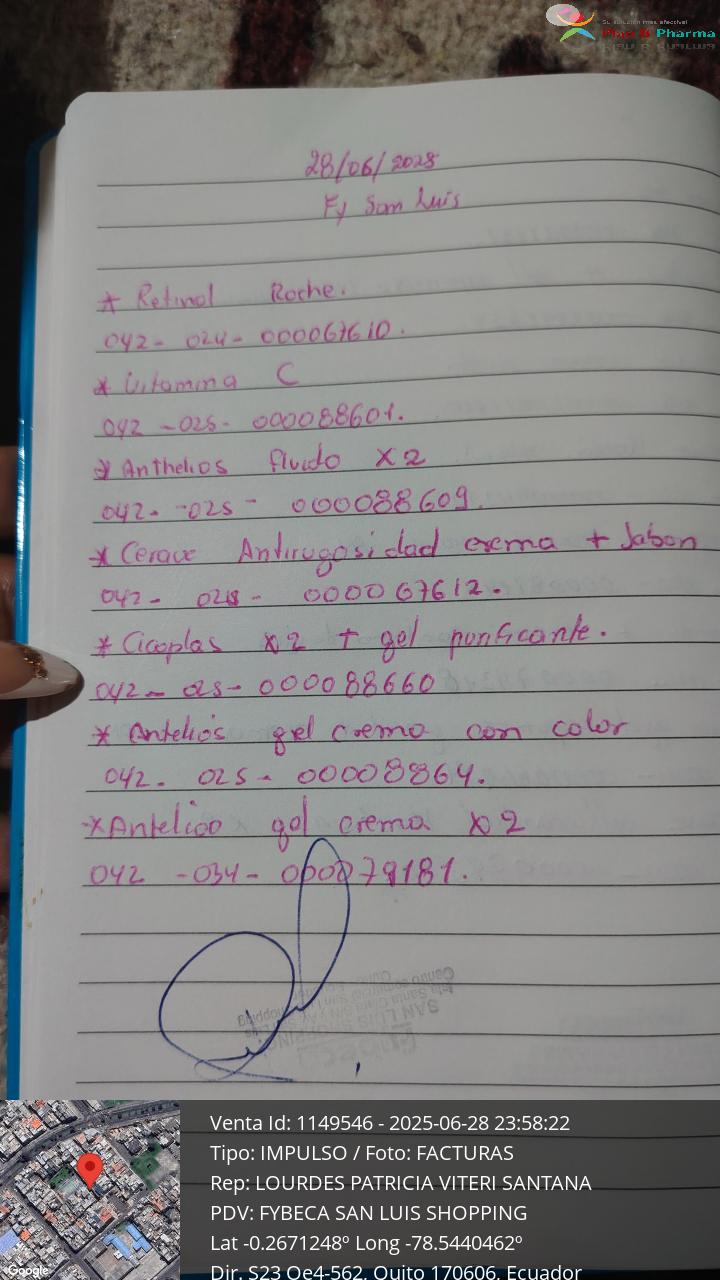 Su solución más efectiva!
Plan B Pharma
28/06/2025
Fy San Luis
* Retinol Roche.
042- 024- 000067610.
* Vitamina C
042 -025- 000088601.
* Anthelios fluido x2
042- -025- 000088609.
* Cerave Antirugosidad crema + Jabon
042- 024- 000067612.
* Cicaplas x2 + gel purificante.
042- 025- 000088660
* Antelios gel crema con color
042- 025- 00008864.
* Antelios gel crema x2
042 -034- 000079181.
SAN LUIS SHOPPING
Venta Id: 1149546 - 2025-06-28 23:58:22
Tipo: IMPULSO / Foto: FACTURAS
Rep: LOURDES PATRICIA VITERI SANTANA
PDV: FYBECA SAN LUIS SHOPPING
Lat -0.2671248º Long -78.5440462º
Dir. S23 Oe4-562, Quito 170606, Ecuador
Google